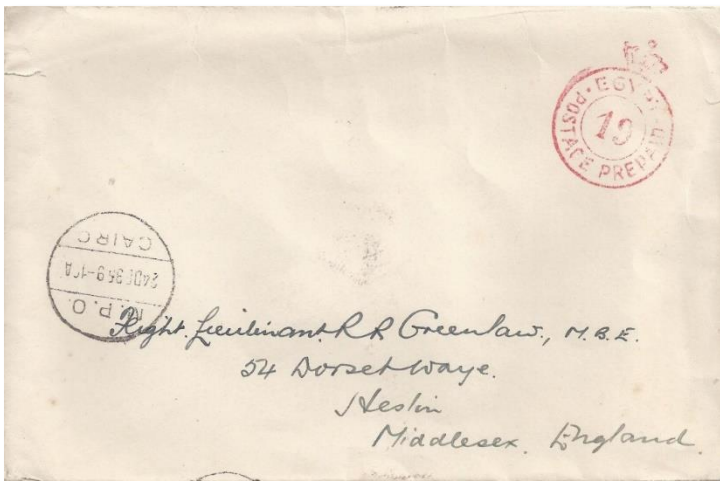 EGYPT
POSTAGE PREPAID
19
CAIRO
M.P.O.
Flight Lieutenant R R Greenlaw., M.B.E.
54 Dorset Waye.
Heston
Middlesex. England.